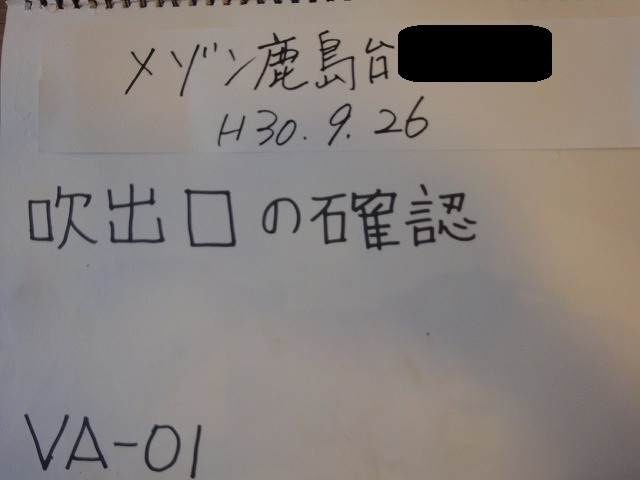 メゾン鹿島台
H30.9.26
吹出口の確認
VA-01